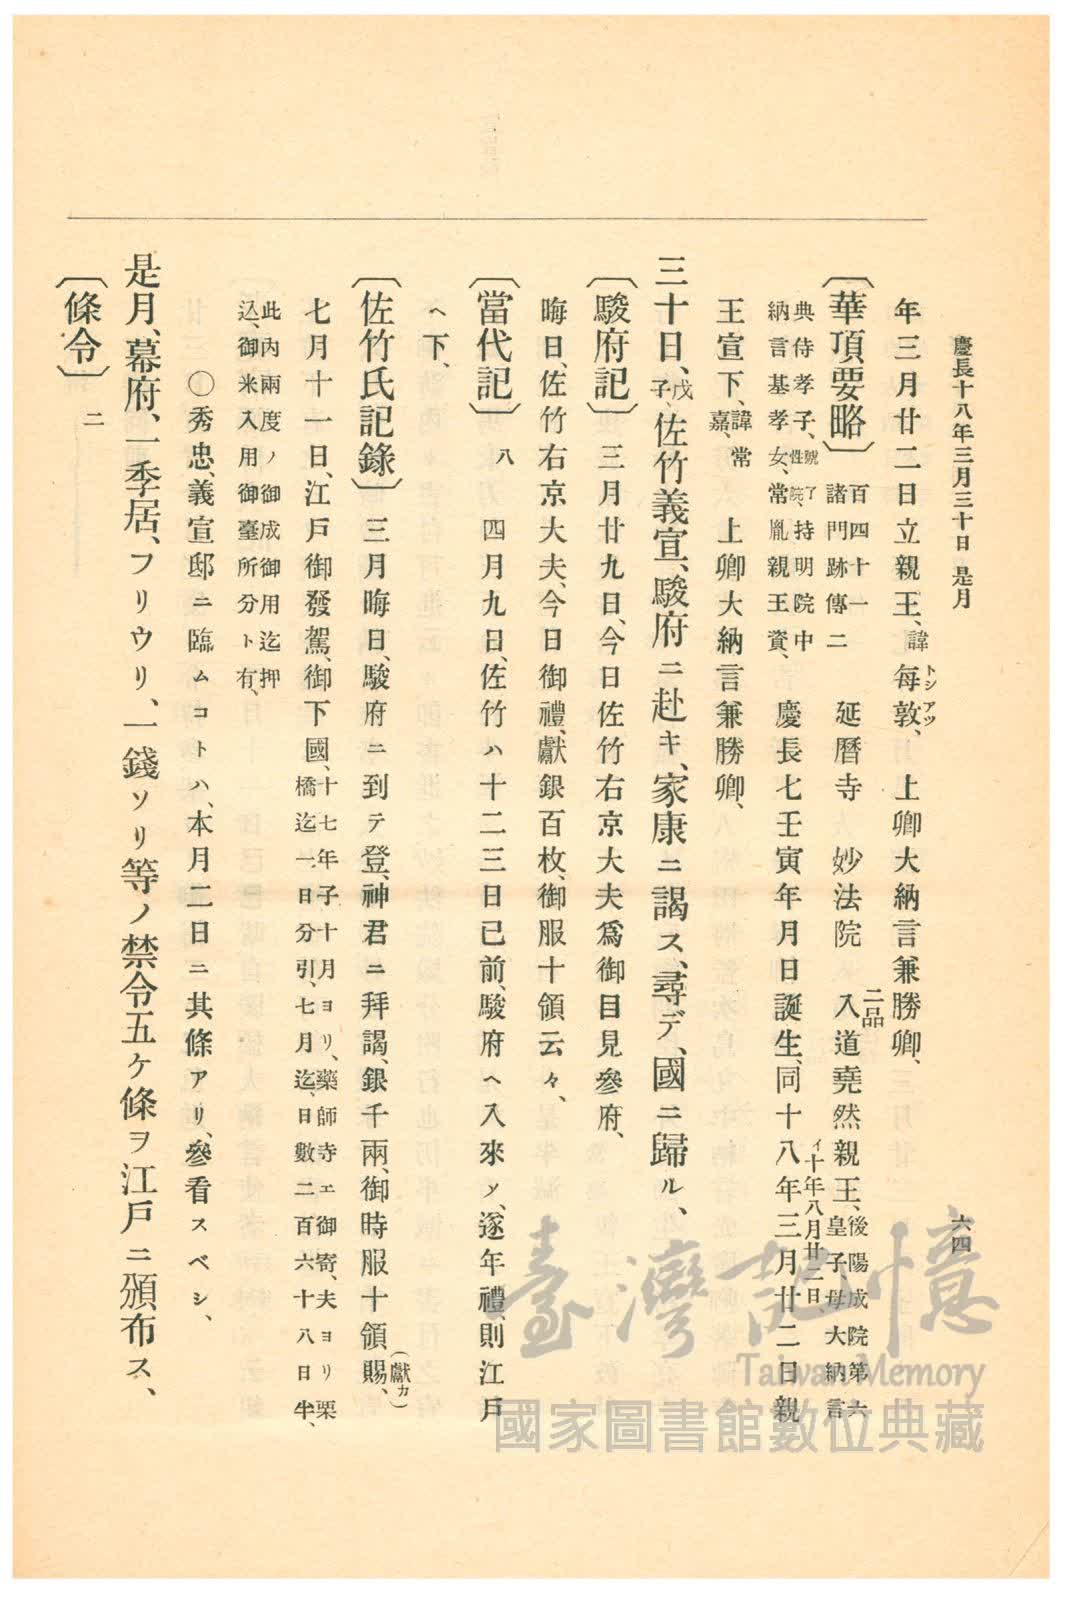 慶長十八年三月三十日 是月
六四
年三月廿二日立親王、諱每敦、トシアツ 上卿大納言兼勝卿、
〔華頂要略〕百四十一 諸門跡傳二 延曆寺 妙法院 二品 入道堯然親王、後陽成院第六皇子母大納言
典侍孝子、號了性院、持明院中納言基孝女、常胤親王資、 慶長七壬寅年月日誕生、同十八年三月廿二日親 イ十年八月廿二日
王宣下、諱常嘉、 上卿大納言兼勝卿、
三十日、戊子、佐竹義宣、駿府ニ赴キ、家康ニ謁ス、尋デ、國ニ歸ル、
〔駿府記〕 三月廿九日、今日佐竹右京大夫爲御目見參府、
晦日、佐竹右京大夫、今日御禮、獻銀百枚、御服十領云々、
〔當代記〕八 四月九日、佐竹ハ十二三日已前、駿府ヘ入來ソ、遂年禮、則江戶
ヘ下、
〔佐竹氏記錄〕 三月晦日、駿府ニ到テ登、神君ニ拜謁、銀千兩、御時服十領賜、(獻カ)
七月十一日、江戶御發駕、御下國、十七年子十月ヨリ、藥師寺エ御寄、夫ヨリ栗橋迄一日分引、七月迄、日數二百六十八日半、
此內兩度ノ御成御用迄押込、御米入用御臺所分ト有、
〇秀忠、義宣邸ニ臨ムコトハ、本月二日ニ其條アリ、參看スベシ、
是月、幕府、一季居、フリウリ、一錢ソリ等ノ禁令五ケ條ヲ江戶ニ頒布ス、
〔條令〕二
臺灣記憶
Taiwan Memory
國家圖書館數位典藏